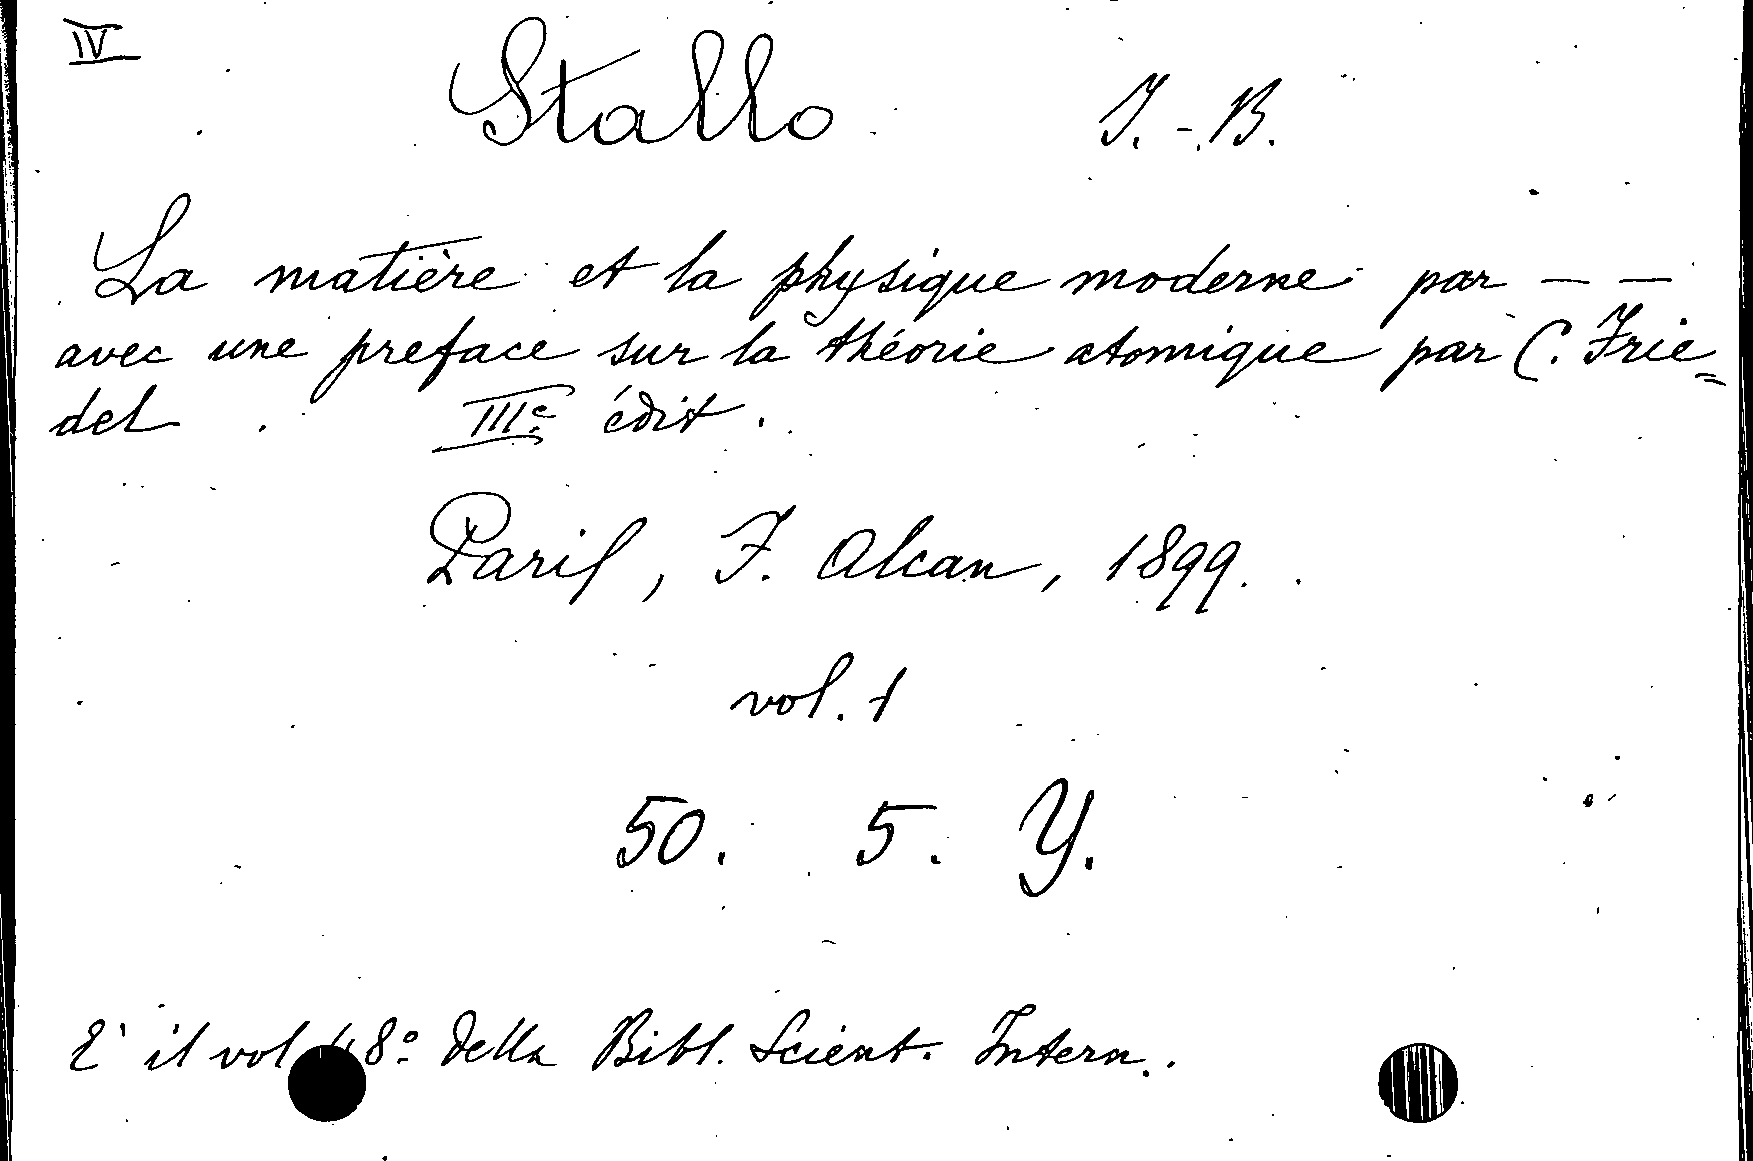 IV
Stallo J.-B.
La matière et la physique moderne par — —
avec une preface sur la théorie atomique par C. Frie=
del. IIIe édit.
Paris, F. Alcan, 1899.
vol. 1
50. 5. Y.
E' il vol 48° della Bibl. Scient. Intern.